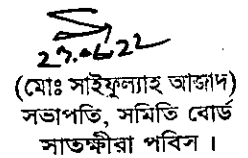 (মোঃ সাইফুল্যাহ আজাদ)
সভাপতি, সমিতি বোর্ড
সাতক্ষীরা পবিস ।